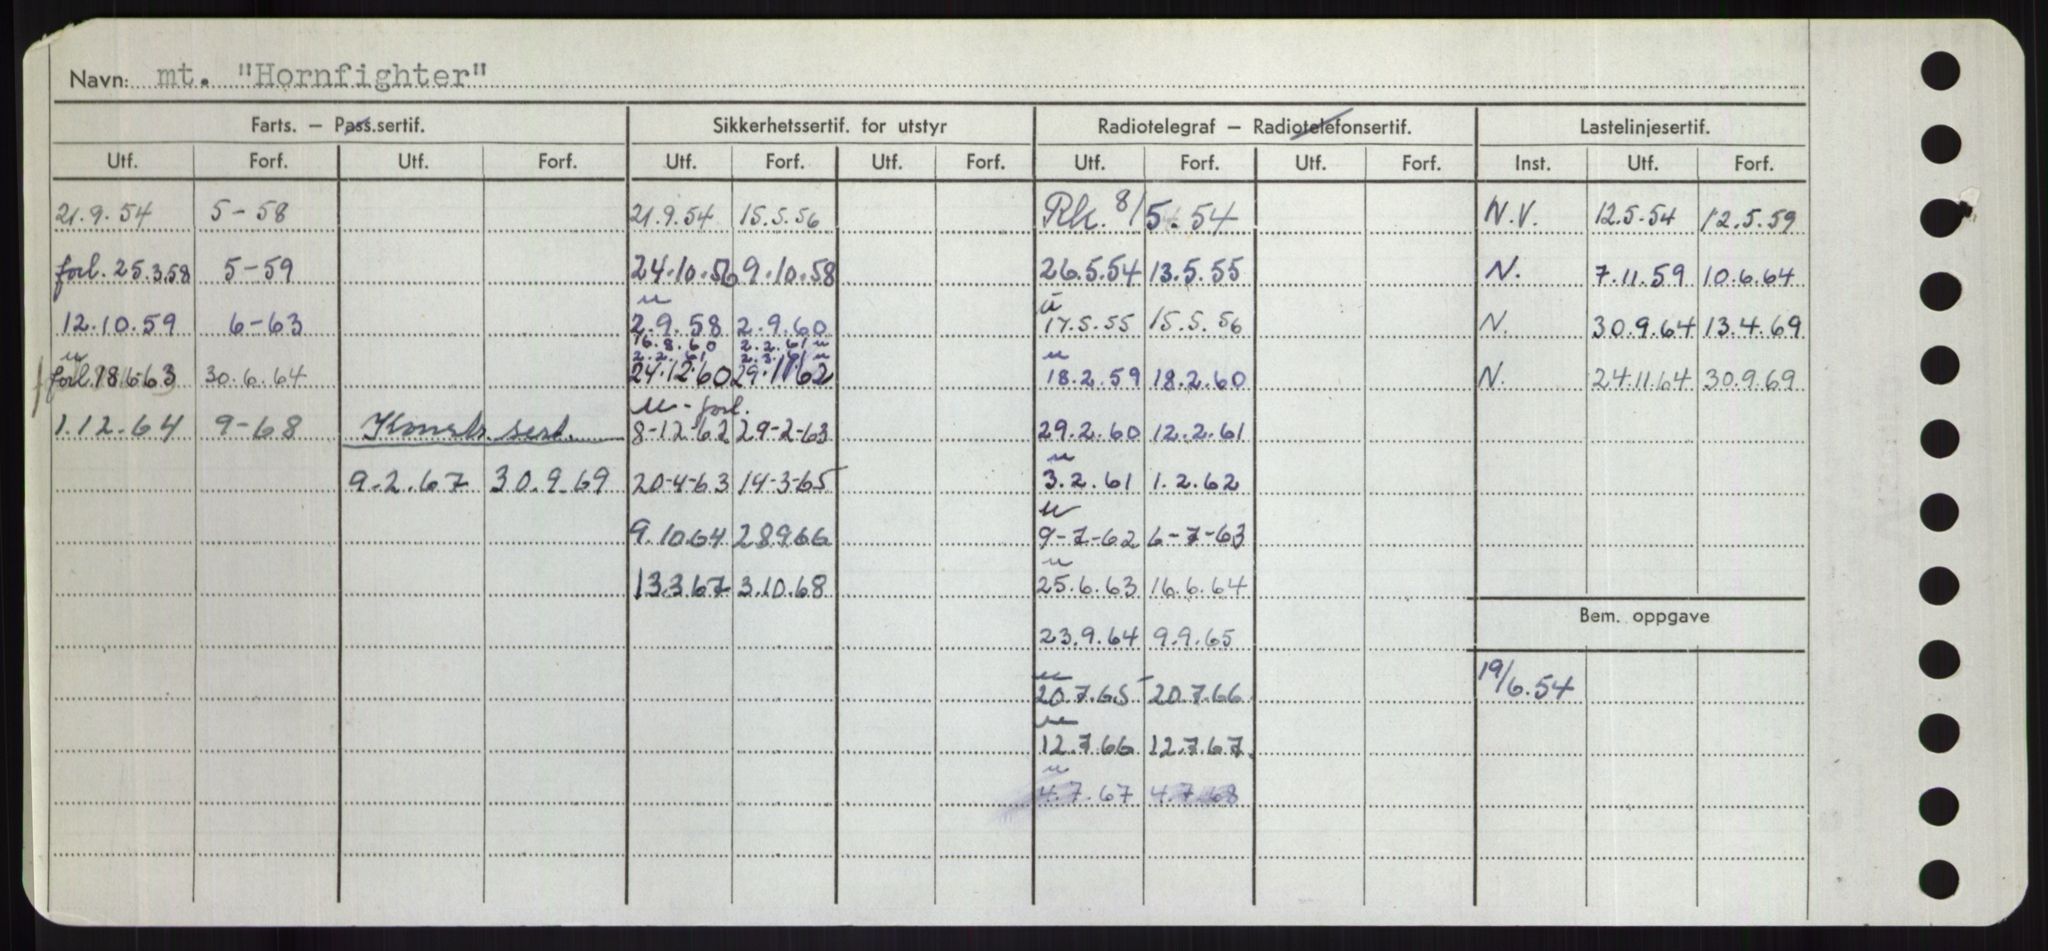 Navn: mt. "Hornfighter"
Farts. – Pass.sertif. Sikkerhetssertif. for utstyr Radiotelegraf – Radiotelefonsertif. Lastelinjesertif.
Utf. Forf. Utf. Forf. Utf. Forf. Utf. Forf. Utf. Forf. Utf. Forf. Inst. Utf. Forf.
21.9.54 5-58 21.9.54 15.5.56 Rk. 8/5.54 N.V. 12.5.54 12.5.59
forl. 25.3.58 5-59 24.10.56 9.10.58 26.5.54 13.5.55 N. 7.11.59 10.6.64
u u
12.10.59 6-63 2.9.58 2.9.60 17.5.55 15.5.56 N. 30.9.64 13.4.69
16.8.60 2.2.61 u
u 2.2.61 2.3.61 u u
forl. 18.6.63 30.6.64 24.12.60 29.11.62 18.2.59 18.2.60 N. 24.11.64 30.9.69
u - forl.
1.12.64 9-68 sert. 8-12-62 29-2-63 29.2.60 12.2.61
u
9.2.67 30.9.69 20-4-63 14-3-65 3.2.61 1.2.62
u
9.10.64 28.9.66 9-7-62 6-7-63
u
13.3.67 3.10.68 25.6.63 16.6.64
Bem. oppgave
23.9.64 9.9.65
u
20.7.65 20.7.66 19/6.54
u
12.7.66 12.7.67.
u
4.7.67 4.7.68